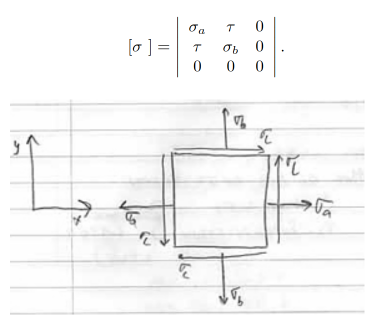 [σ ] = | σₐ τ 0 |
| τ σ_b 0 | .
| 0 0 0 |
σ_b
y
τ
τ
x
σₐ
σₐ
τ
τ
σ_b